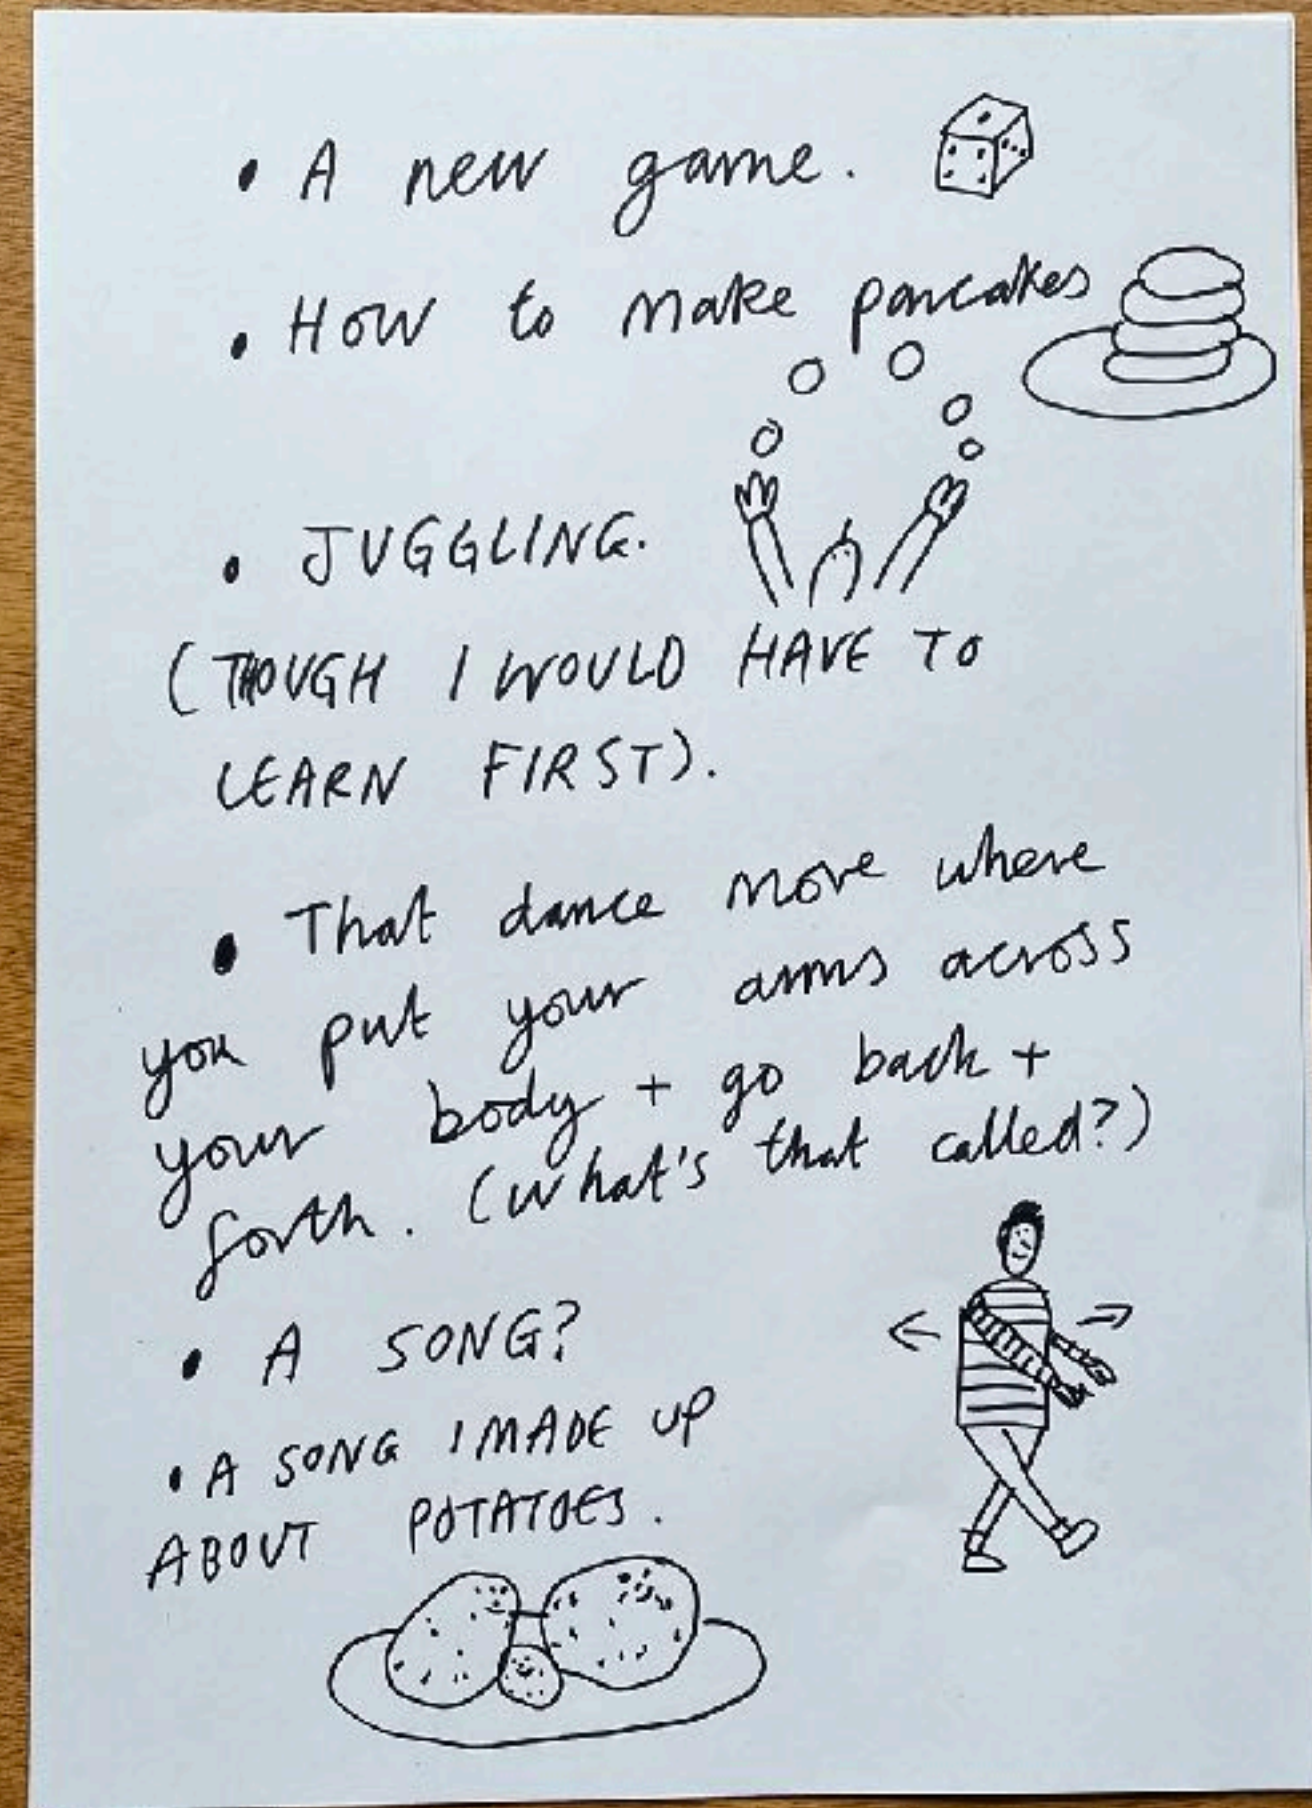 • A new game.
• How to make pancakes
• JUGGLING.
(THOUGH I WOULD HAVE TO
LEARN FIRST).
• That dance move where
you put your arms across
your body + go back +
forth. (What's that called?)
• A SONG?
• A SONG I MADE UP
ABOUT POTATOES.